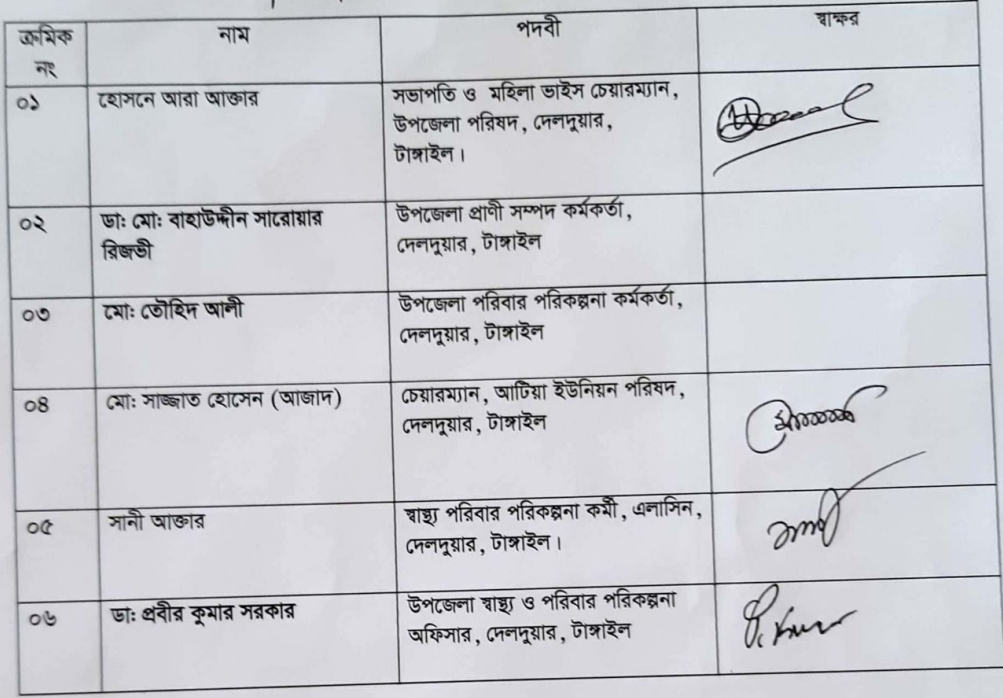 ক্রমিক নং
নাম
পদবী
স্বাক্ষর
০১
হোসনে আরা আক্তার
সভাপতি ও মহিলা ভাইস চেয়ারম্যান,
উপজেলা পরিষদ, দেলদুয়ার,
টাঙ্গাইল।
০২
ডা: মো: বাহাউদ্দীন সারোয়ার
রিজভী
উপজেলা প্রাণী সম্পদ কর্মকর্তা,
দেলদুয়ার, টাঙ্গাইল
০৩
মো: তৌহিদ আলী
উপজেলা পরিবার পরিকল্পনা কর্মকর্তা,
দেলদুয়ার, টাঙ্গাইল
০৪
মো: সাজ্জাত হোসেন (আজাদ)
চেয়ারম্যান, আটিয়া ইউনিয়ন পরিষদ,
দেলদুয়ার, টাঙ্গাইল
০৫
সানী আক্তার
স্বাস্থ্য পরিবার পরিকল্পনা কর্মী, এলাসিন,
দেলদুয়ার, টাঙ্গাইল।
০৬
ডা: প্রবীর কুমার সরকার
উপজেলা স্বাস্থ্য ও পরিবার পরিকল্পনা
অফিসার, দেলদুয়ার, টাঙ্গাইল